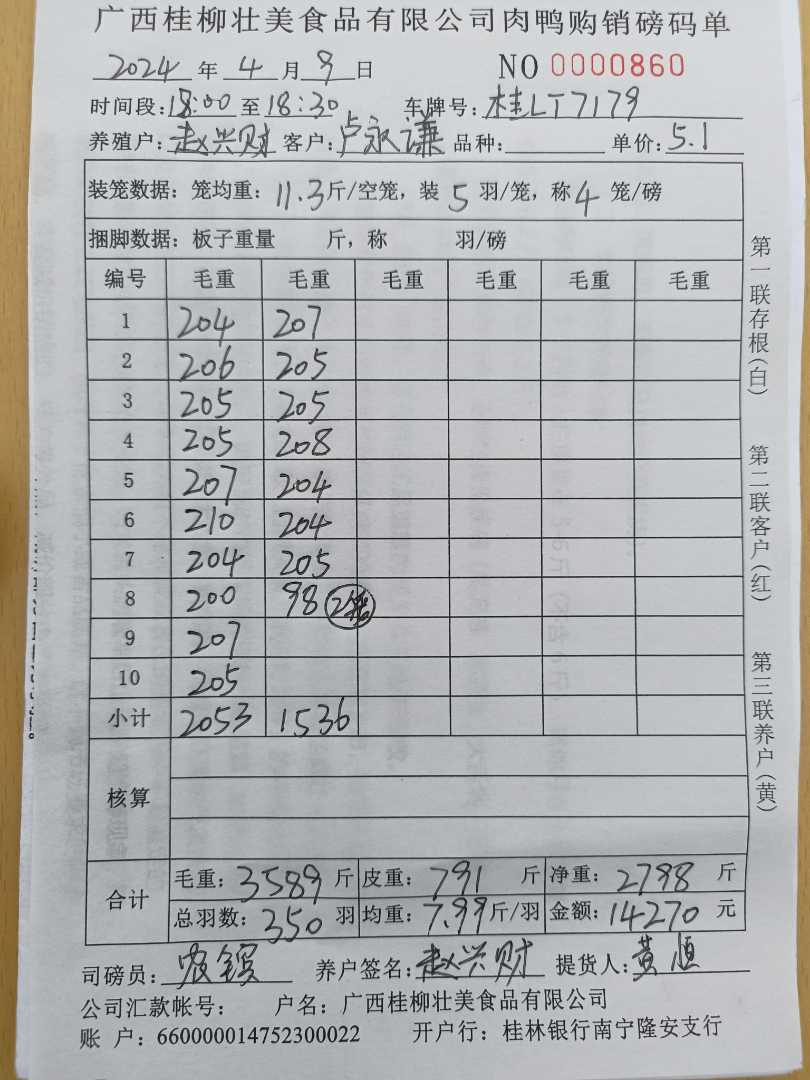 广西桂柳壮美食品有限公司肉鸭购销磅码单
2024 年 4 月 9 日 NO 0000860
时间段: 18:00 至 18:30 车牌号: 桂LT7179
养殖户: 赵兴财 客户: 卢永谦 品种: 单价: 5.1
装笼数据: 笼均重: 11.3 斤/空笼, 装 5 羽/笼, 称 4 笼/磅
捆脚数据: 板子重量 斤, 称 羽/磅
编号 毛重 毛重 毛重 毛重 毛重 毛重
1 204 207
2 206 205
3 205 205
4 205 208
5 207 204
6 210 204
7 204 205
8 200 98
9 207
10 205
小计 2053 1536
核算
合计 毛重: 3589 斤 皮重: 791 斤 净重: 2798 斤
总羽数: 350 羽 均重: 7.99 斤/羽 金额: 14270 元
司磅员: 养户签名: 赵兴财 提货人: 黄恒
公司汇款帐号: 户名: 广西桂柳壮美食品有限公司
账 户: 660000014752300022 开户行: 桂林银行南宁隆安支行
第一联存根(白)
第二联客户(红)
第三联养户(黄)